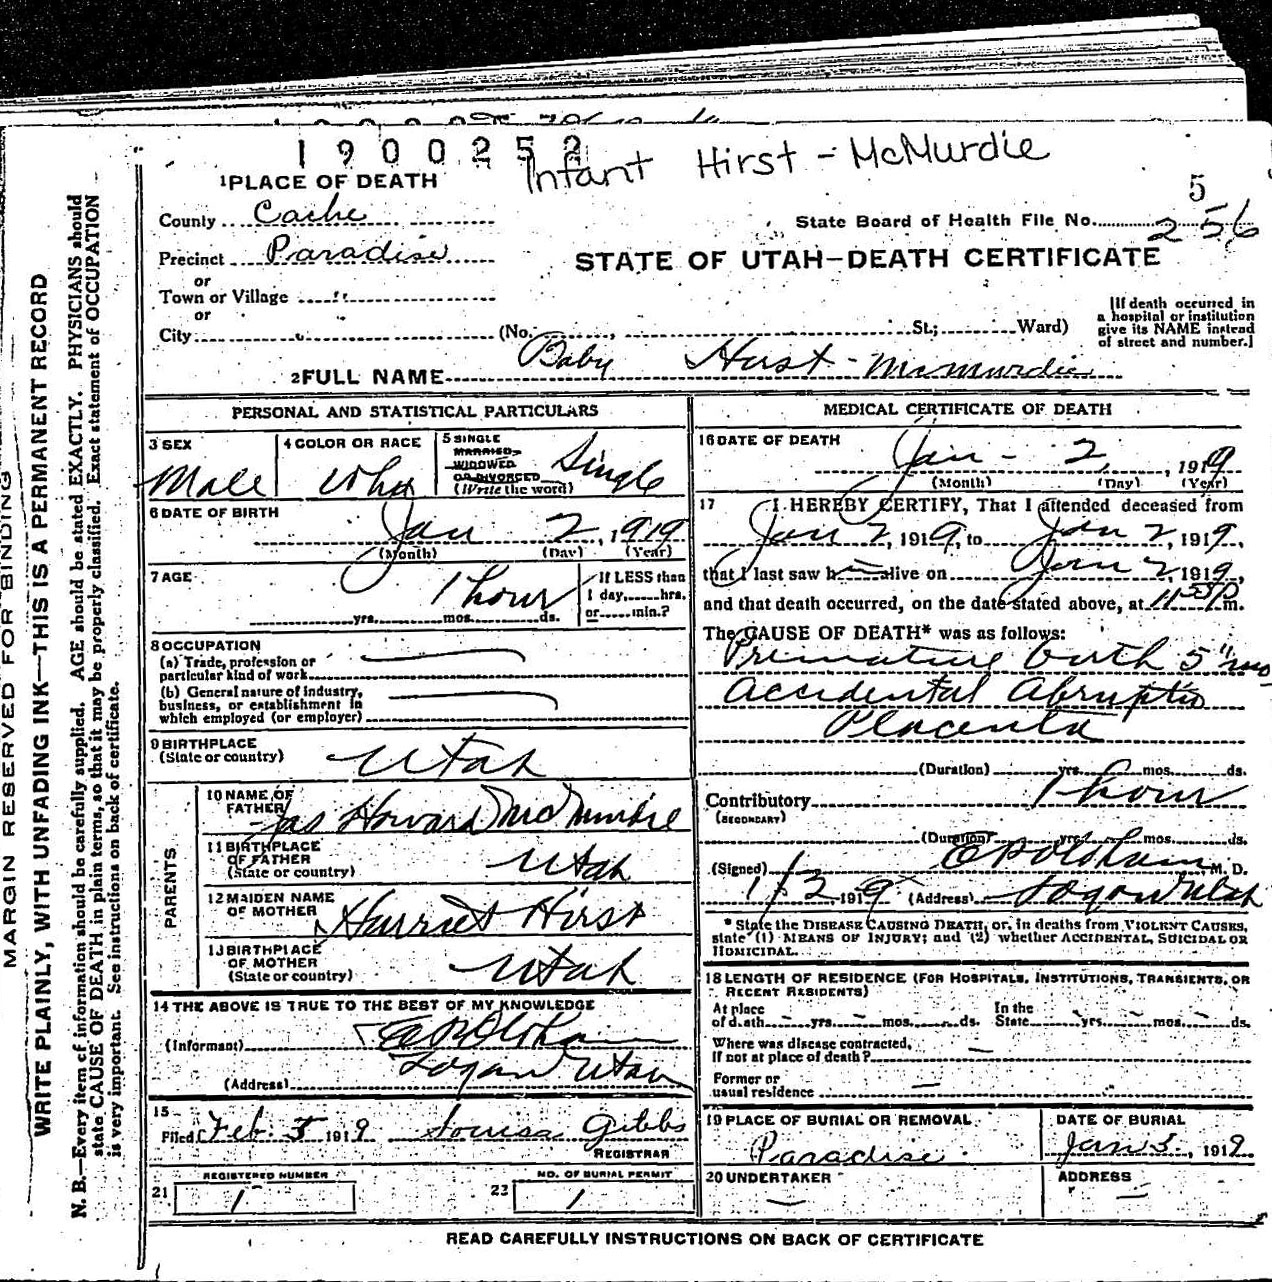 1900252
Infant Hirst - McMurdie
1 PLACE OF DEATH
5
County Cache
State Board of Health File No. 256
Precinct Paradise
STATE OF UTAH—DEATH CERTIFICATE
or
Town or Village "
or
City (No. , St.; Ward)
[If death occurred in a hospital or institution give its NAME instead of street and number.]
2 FULL NAME Baby Hirst - McMurdie
PERSONAL AND STATISTICAL PARTICULARS
3 SEX Male
4 COLOR OR RACE Whit
5 SINGLE MARRIED WIDOWED OR DIVORCED (Write the word) Single
6 DATE OF BIRTH
Jan 2, 1919
(Month) (Day) (Year)
7 AGE 1 hour
yrs. mos. ds.
If LESS than
1 day, hrs.
or min.?
8 OCCUPATION
(a) Trade, profession or
particular kind of work
(b) General nature of industry,
business, or establishment in
which employed (or employer)
9 BIRTHPLACE
(State or country) Utah
PARENTS
10 NAME OF
FATHER Jas Howard McMurdie
11 BIRTHPLACE
OF FATHER
(State or country) Utah
12 MAIDEN NAME
OF MOTHER Harriet Hirst
13 BIRTHPLACE
OF MOTHER
(State or country) Utah
14 THE ABOVE IS TRUE TO THE BEST OF MY KNOWLEDGE
(Informant) Oldham
(Address) Logan Utah
15
Filed Feb. 5 1919 Louisa Gibbs
REGISTRAR
REGISTERED NUMBER
21 1
NO. OF BURIAL PERMIT
22 1
MEDICAL CERTIFICATE OF DEATH
16 DATE OF DEATH
Jan - 2, 1919
(Month) (Day) (Year)
17 I HEREBY CERTIFY, That I attended deceased from
Jan 2, 1919, to Jan 2, 1919,
that I last saw h alive on Jan 2, 1919,
and that death occurred, on the date stated above, at 11 P m.
The CAUSE OF DEATH* was as follows:
Premature birth 5" mo
Accidental Abruptio
Placenta
(Duration) yrs. mos. ds.
Contributory 1 hour
(SECONDARY)
(Duration) yrs. mos. ds.
(Signed) Oldham, M. D.
1/2 1919 (Address) Logan Utah
* State the DISEASE CAUSING DEATH, or, in deaths from VIOLENT CAUSES,
state (1) MEANS OF INJURY; and (2) whether ACCIDENTAL, SUICIDAL OR
HOMICIDAL.
18 LENGTH OF RESIDENCE (FOR HOSPITALS, INSTITUTIONS, TRANSIENTS, OR
RECENT RESIDENTS)
At place
of death yrs. mos. ds.
In the
State yrs. mos. ds.
Where was disease contracted,
If not at place of death?
Former or
usual residence
19 PLACE OF BURIAL OR REMOVAL
Paradise
DATE OF BURIAL
Jan 3, 1919
20 UNDERTAKER
ADDRESS
READ CAREFULLY INSTRUCTIONS ON BACK OF CERTIFICATE
MARGIN RESERVED FOR BINDING
WRITE PLAINLY, WITH UNFADING INK—THIS IS A PERMANENT RECORD
N. B.—Every item of information should be carefully supplied. AGE should be stated EXACTLY. PHYSICIANS should
state CAUSE OF DEATH in plain terms, so that it may be properly classified. Exact statement of OCCUPATION
is very important. See instructions on back of certificate.